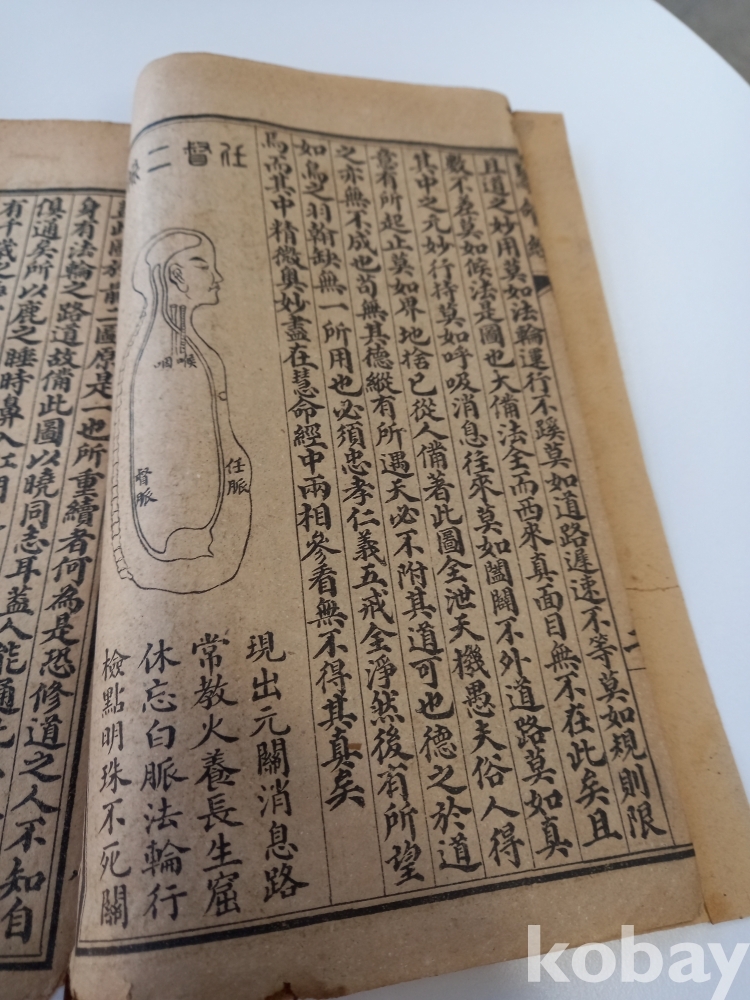 慧命經
二
且道之妙用莫如法輪運行不蹊莫如道路遲速不等莫如規則限
數不差莫如候法是圖也大備法全而西來真面目無不在此矣且
其中之元妙行持莫如呼吸消息往來莫如闔闢不外道路莫如真
竟有所起止莫如界地捨已從人備著此圖全泄天機愚夫俗人得
之亦無不成也苟無其德縱有所遇天必不附其道可也德之於道
如鳥之羽翰缺無一所用也必須忠孝仁義五戒全淨然後有所望
焉而其中精微奧妙盡在慧命經中兩相參看無不得其真矣
任督二
喉
咽
任脈
督脈
現出元關消息路
常教火養長生窟
休忘白脈法輪行
檢點明珠不死關
此圖於前二圖原是一也所重續者何為是恐修道之人不知自
身有法輪之路道故備此圖以曉同志耳蓋人能通
俱通矣所以鹿之睡時鼻入肛門
有千歲之
kobay